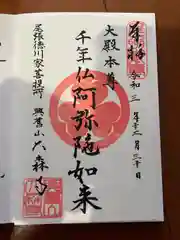 奉拝
令和三年十二月三十日
大殿本尊
千年仏阿弥陀如来
尾張徳川家菩提所
興旧山大森寺